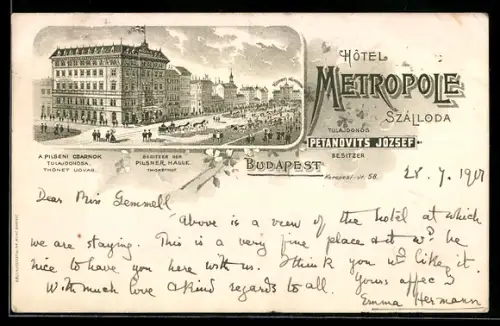 HÔTEL
METROPOLE
SZÁLLODA
TULAJDONOS
PETANOVITS JÓZSEF
BESITZER
BUDAPEST
KEREPESI-ÚT. 58.
A PILSENI CSARNOK
TULAJDONOSA.
THONET UDVAR.
BESITZER DER
PILSNER HALLE.
THONETHOF.
28/7/1901
Dear Miss Gemmell
Above is a view of the hotel at which
we are staying. This is a very fine place & it wd. be
nice to have you here with us. I think you wd. like it.
With much love & kind regards to all. Yours affec
Emma Hermann